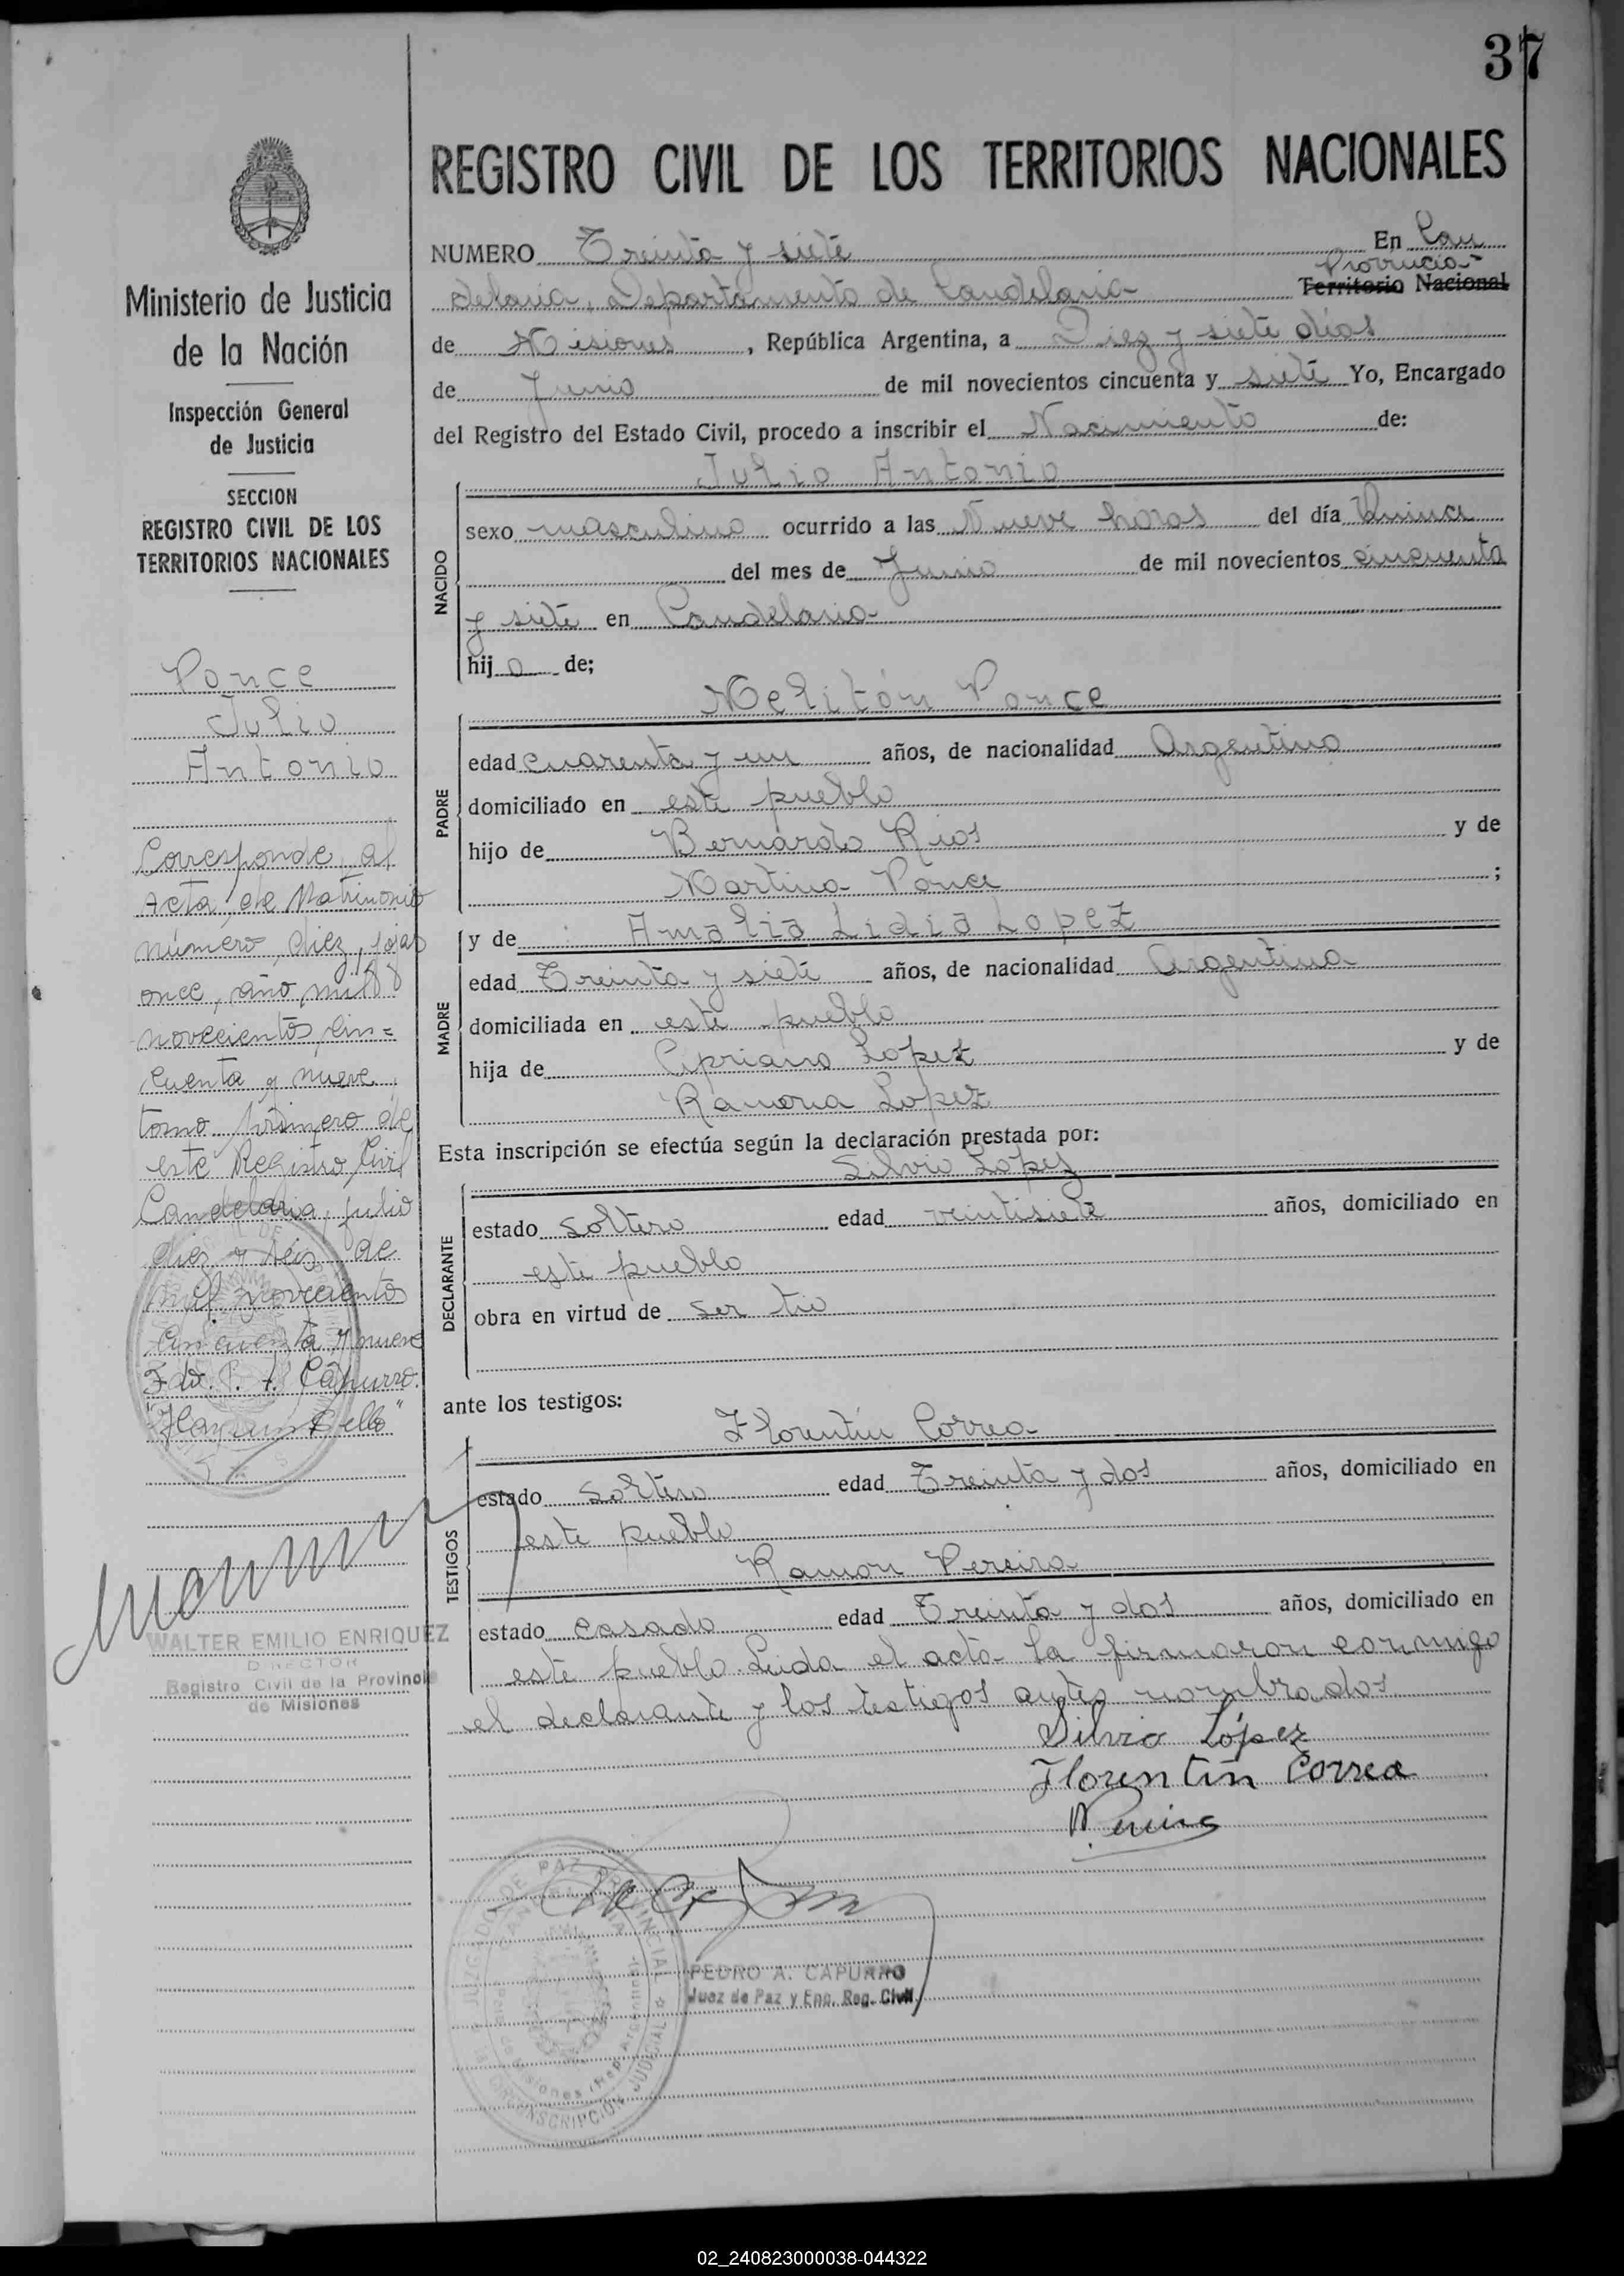 37
REGISTRO CIVIL DE LOS TERRITORIOS NACIONALES
NUMERO Treinta y siete En Can
delaria, Departamento de Candelaria Provincia Territorio Nacional
de Misiones, República Argentina, a Diez y siete días
de Junio de mil novecientos cincuenta y siete Yo, Encargado
del Registro del Estado Civil, procedo a inscribir el Nacimiento de:
Julio Antonio
NACIDO
sexo masculino ocurrido a las Nueve horas del día Quince
del mes de Junio de mil novecientos cincuenta
y siete en Candelaria
hij o de;
Melitón Ponce
PADRE
edad cuarenta y un años, de nacionalidad Argentino
domiciliado en este pueblo
hijo de Bernardo Rios y de
Martina Ponce ;
y de Amalia Lidia Lopez
MADRE
edad Treinta y siete años, de nacionalidad Argentina
domiciliada en este pueblo
hija de Cipriano Lopez y de
Ramona Lopez
Esta inscripción se efectúa según la declaración prestada por:
Silvio Lopez
DECLARANTE
estado Soltero edad veintisiete años, domiciliado en
este pueblo
obra en virtud de ser tio
ante los testigos:
Florentin Correa
TESTIGOS
estado Soltero edad Treinta y dos años, domiciliado en
este pueblo
Ramon Pereira
estado casado edad Treinta y dos años, domiciliado en
este pueblo. Leida el acta la firmaron conmigo
el declarante y los testigos antes nombrados
Silvio López
Florentín Correa
PEDRO A. CAPURRO
Juez de Paz y Enc. Reg. Civil
JUZGADO DE PAZ PROVINCIAL
CANDELARIA
CIRCUNSCRIPCION JUDICIAL
Misiones (Rep. Argentina)
Ministerio de Justicia
de la Nación
Inspección General
de Justicia
SECCION
REGISTRO CIVIL DE LOS
TERRITORIOS NACIONALES
Ponce
Julio
Antonio
Corresponde al
Acta de Matrimonio
número, diez, fojas
once, año mil
novecientos cin=
cuenta y nueve,
tomo primero de
este Registro Civil
Candelaria, julio
diez y seis de
mil novecientos
cincuenta y nueve
Fdo. P. A. Capurro.
"Hay un sello"
WALTER EMILIO ENRIQUEZ
DIRECTOR
Registro Civil de la Provincia
de Misiones
02_240823000038-044322